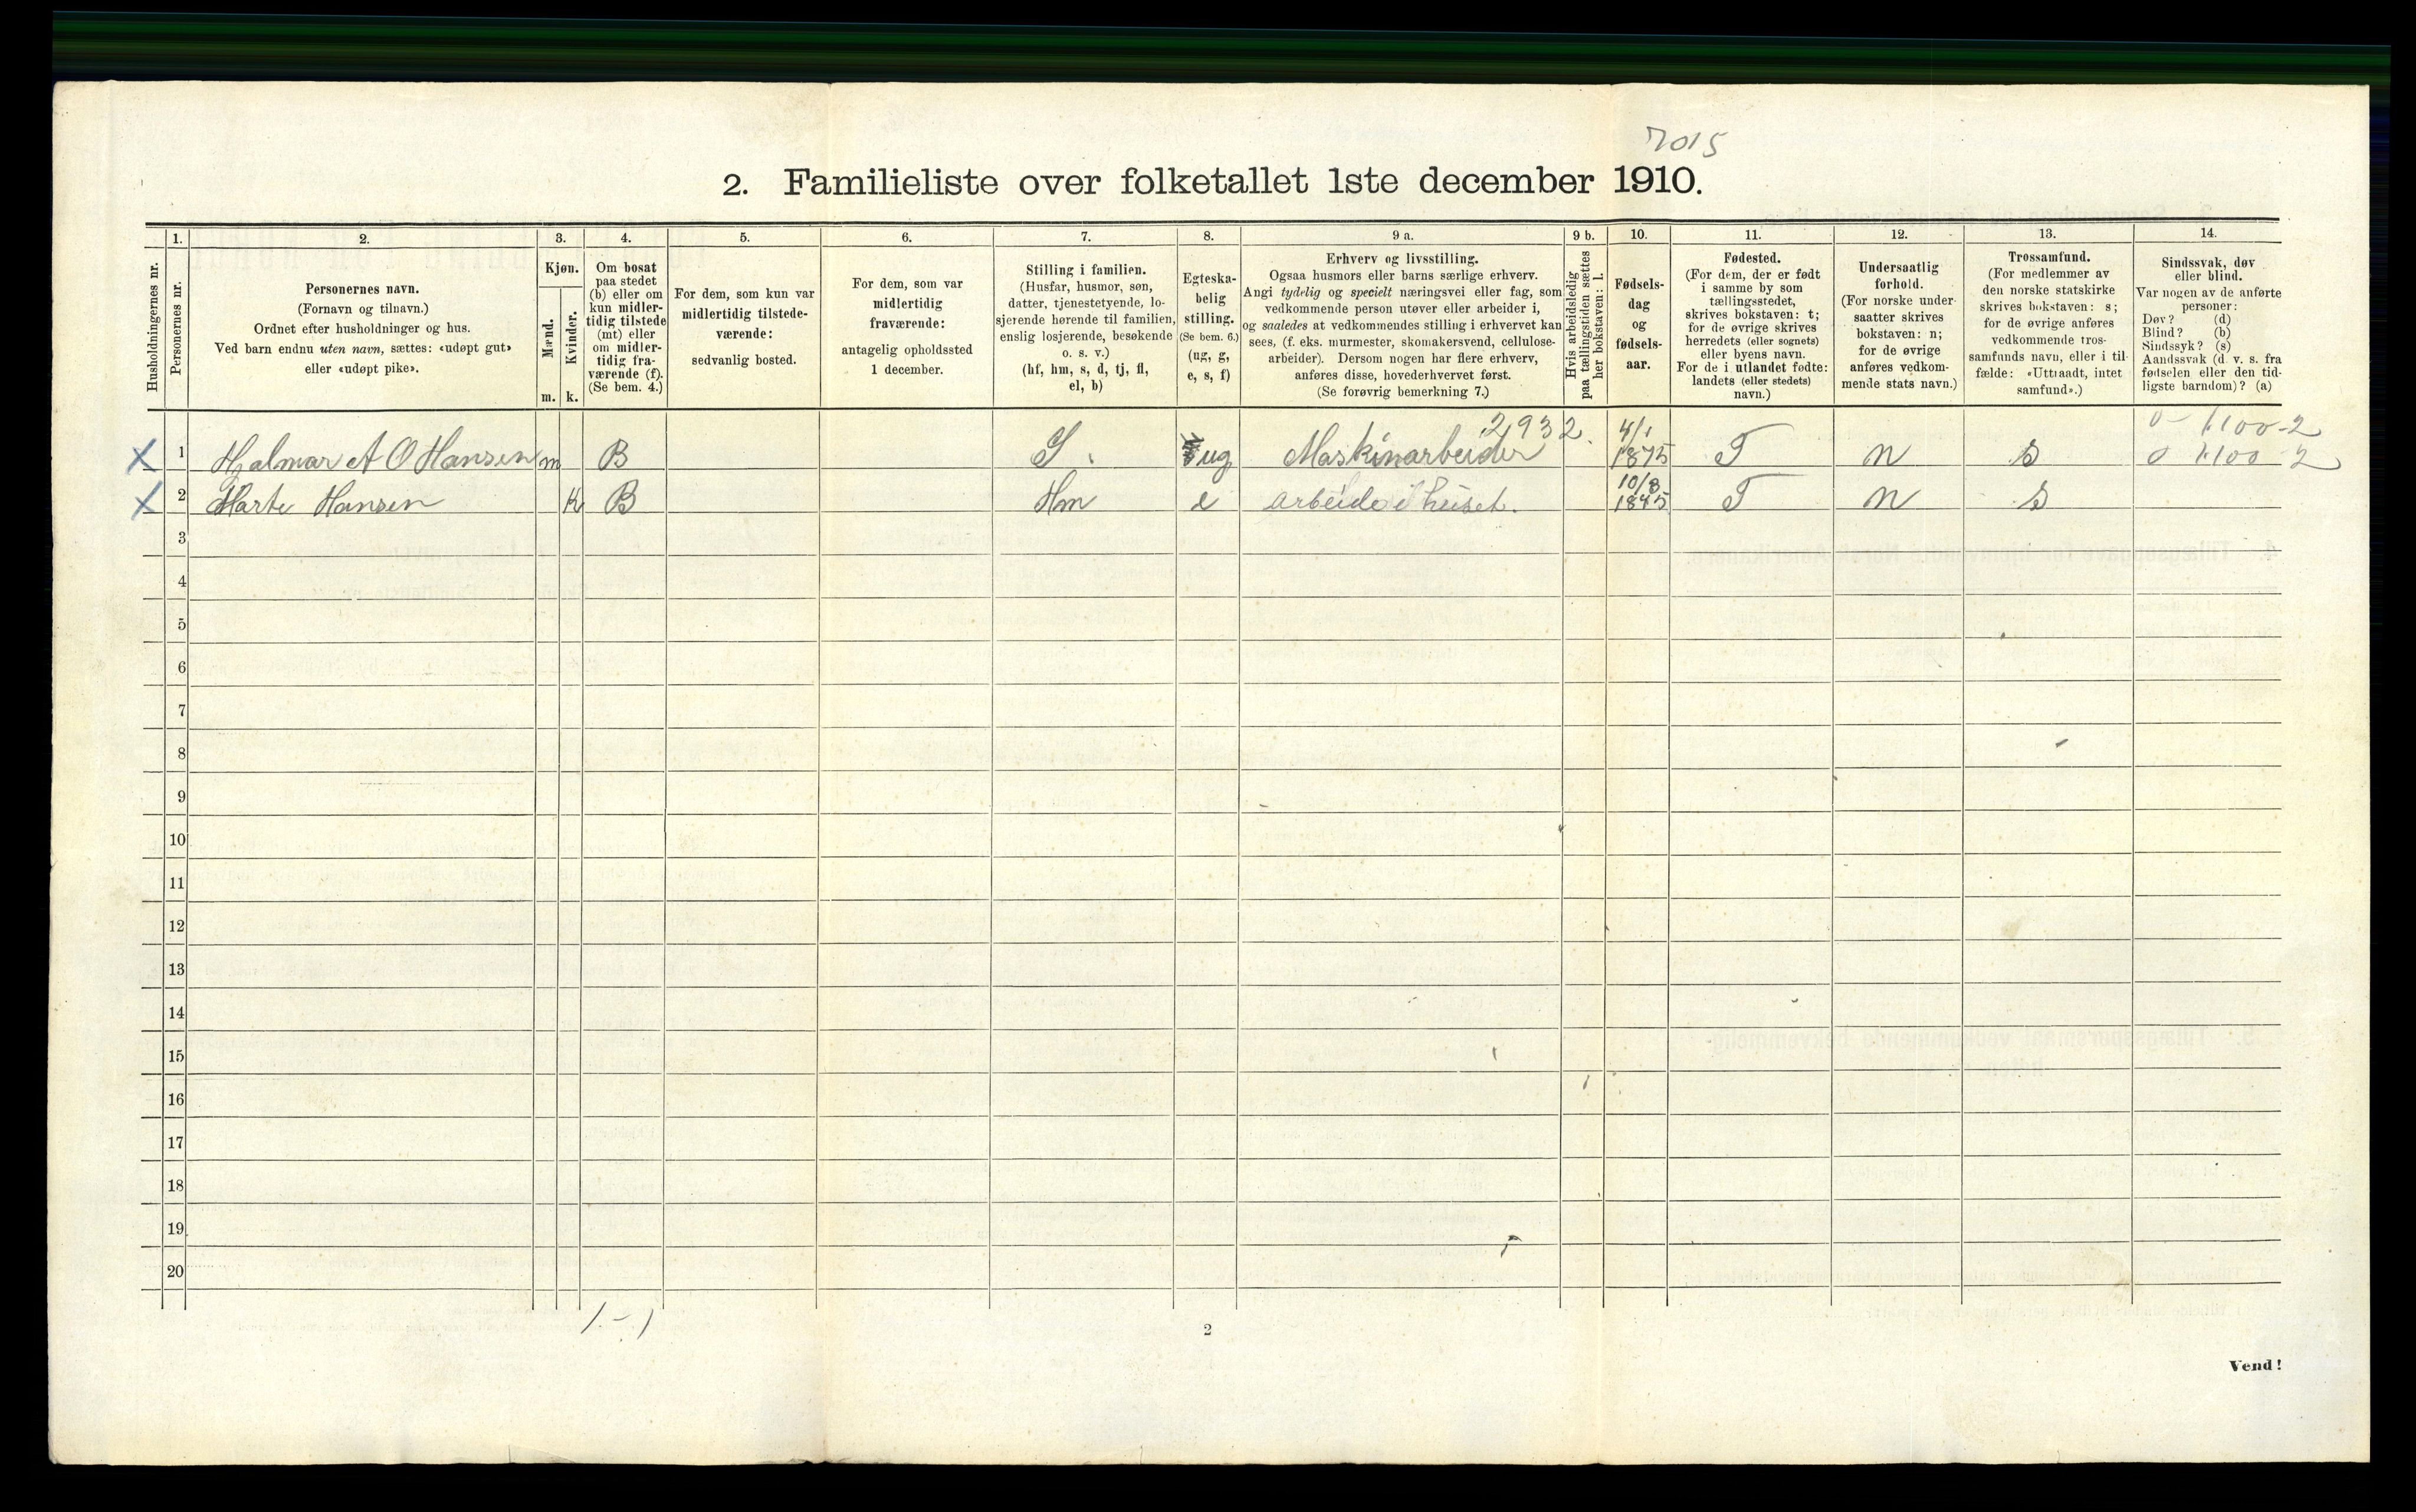 7015
2. Familieliste over folketallet 1ste december 1910.
Husholdningernes nr.
1.
Personernes nr.
2.
Personernes navn.
(Fornavn og tilnavn.)
Ordnet efter husholdninger og hus.
Ved barn endnu uten navn, sættes: «udøpt gut»
eller «udøpt pike».
3.
Kjøn.
Mænd.
Kvinder.
m. k.
4.
Om bosat
paa stedet
(b) eller om
kun midler-
tidig tilstede
(mt) eller
om midler-
tidig fra-
værende (f).
(Se bem. 4.)
5.
For dem, som kun var
midlertidig tilstede-
værende:
sedvanlig bosted.
6.
For dem, som var
midlertidig
fraværende:
antagelig opholdssted
1 december.
7.
Stilling i familien.
(Husfar, husmor, søn,
datter, tjenestetyende, lo-
sjerende hørende til familien,
enslig losjerende, besøkende
o. s. v.)
(hf, hm, s, d, tj, fl,
el, b)
8.
Egteska-
belig
stilling.
(Se bem. 6.)
(ug, g,
e, s, f)
9 a.
Erhverv og livsstilling.
Ogsaa husmors eller barns særlige erhverv.
Angi tydelig og specielt næringsvei eller fag, som
vedkommende person utøver eller arbeider i,
og saaledes at vedkommendes stilling i erhvervet kan
sees, (f. eks. murmester, skomakersvend, cellulose-
arbeider). Dersom nogen har flere erhverv,
anføres disse, hovederhvervet først.
(Se forøvrig bemerkning 7.)
9 b.
Hvis arbeidsledig
paa tællingstiden sættes
her bokstaven: l.
10.
Fødsels-
dag
og
fødsels-
aar.
11.
Fødested.
(For dem, der er født
i samme by som
tællingsstedet,
skrives bokstaven: t;
for de øvrige skrives
herredets (eller sognets)
eller byens navn.
For de i utlandet fødte:
landets (eller stedets)
navn.)
12.
Undersaatlig
forhold.
(For norske under-
saatter skrives
bokstaven: n;
for de øvrige
anføres vedkom-
mende stats navn.)
13.
Trossamfund.
(For medlemmer av
den norske statskirke
skrives bokstaven: s;
for de øvrige anføres
vedkommende tros-
samfunds navn, eller i til-
fælde: «Uttraadt, intet
samfund».)
14.
Sindssvak, døv
eller blind.
Var nogen av de anførte
personer:
Døv? (d)
Blind? (b)
Sindssyk? (s)
Aandssvak (d. v. s. fra
fødselen eller den tid-
ligste barndom)? (a)
2,932. 4/1 0 - 1100-2
X 1 Hjalmar A O Hansen m B S. ug Maskinarbeider 1875 T n s 0 1100 2
10/8
X 2 Marte Hansen K B Hm e arbeide i huset. 1845 T n s
3
4
5
6
7
8
9
10
11
12
13
14
15
16
17
18
19
20
1 - 1
2
Vend!